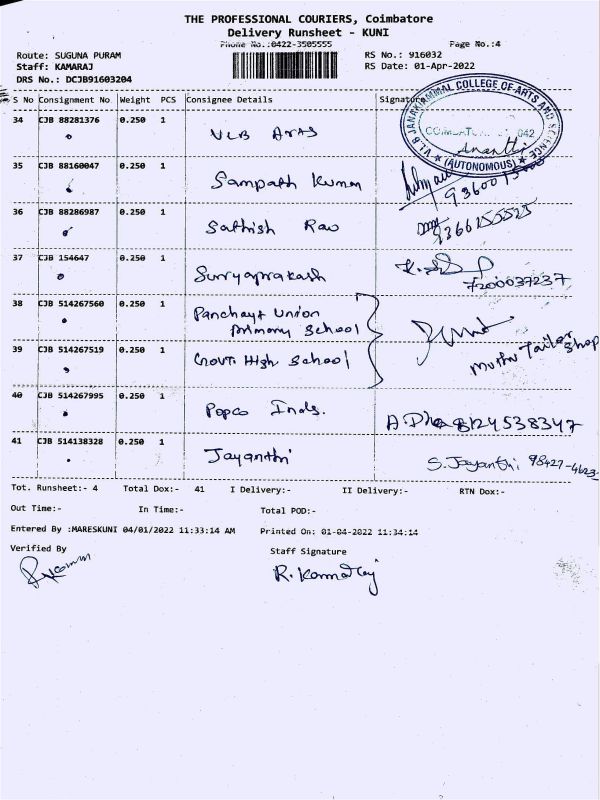 THE PROFESSIONAL COURIERS, Coimbatore
Delivery Runsheet - KUNI
Phone No.:0422-3505555
Page No.:4
Route: SUGUNA PURAM
RS No.: 916032
Staff: KAMARAJ
RS Date: 01-Apr-2022
DRS No.: DCJB91603204
S No Consignment No Weight PCS Consignee Details Signature
34 CJB 88281376 0.250 1 VLB Arts
V.L.B JANAKIAMMAL COLLEGE OF ARTS AND SCIENCE
042
(AUTONOMOUS)
Ananthi
35 CJB 88160047 0.250 1 Sampath Kumar
36 CJB 88286987 0.250 1 Sathish Rao 9366155525
37 CJB 154647 0.250 1 Suryaprakash
7200037237
38 CJB 514267560 0.250 1 Panchayt Union
Primary School
39 CJB 514267519 0.250 1 Govt. High School
Muthu Tailor Shop
40 CJB 514267995 0.250 1 Popco Inds.
8124538347
41 CJB 514138328 0.250 1 Jayanthi S. Jayanthi 98427-4623
Tot. Runsheet:- 4 Total Dox:- 41 I Delivery:- II Delivery:- RTN Dox:-
Out Time:- In Time:- Total POD:-
Entered By :MARESKUNI 04/01/2022 11:33:14 AM Printed On: 01-04-2022 11:34:14
Verified By Staff Signature
R. Kamaraj